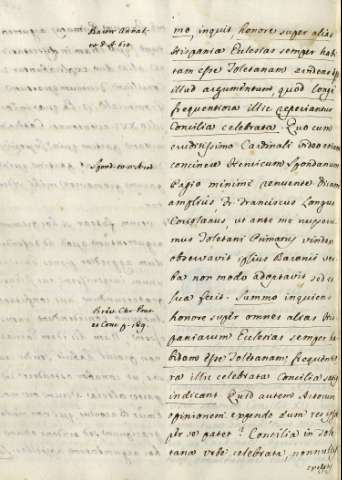 Baron Annal.
mo, inquit, honore super alias
Hispaniæ Eclesias semper habi
tam esse Toletanam evidens
illud argumentum, quod longe
frequentiora illic reperiantur
Concilia celebrata. Quo cum
eruditissimo Cardinali
Spond. in
concinere Henricum Spondanum
Pagio minimè renuente dicam
amplius Fr. Franciscus Longus
Coriolanus, ut ante me nuper
mus Toletani Primatus vindex
observavit, ipsius Baronii ver
ba non modo adoptavit, sed et
sua fecit. Summo inquiens
Brev. Chr. Pont.
et Conc. p. 189.
honore super omnes alias His
paniarum Eclesias semper ha
bitam esse Toletanam, frequentio
ra illic celebrata Concilia satis
indicant. Quid autem
opinionem expendo, dum res ipsa
per se patet? Concilia in Tole
tana urbe celebrata, nonnullis